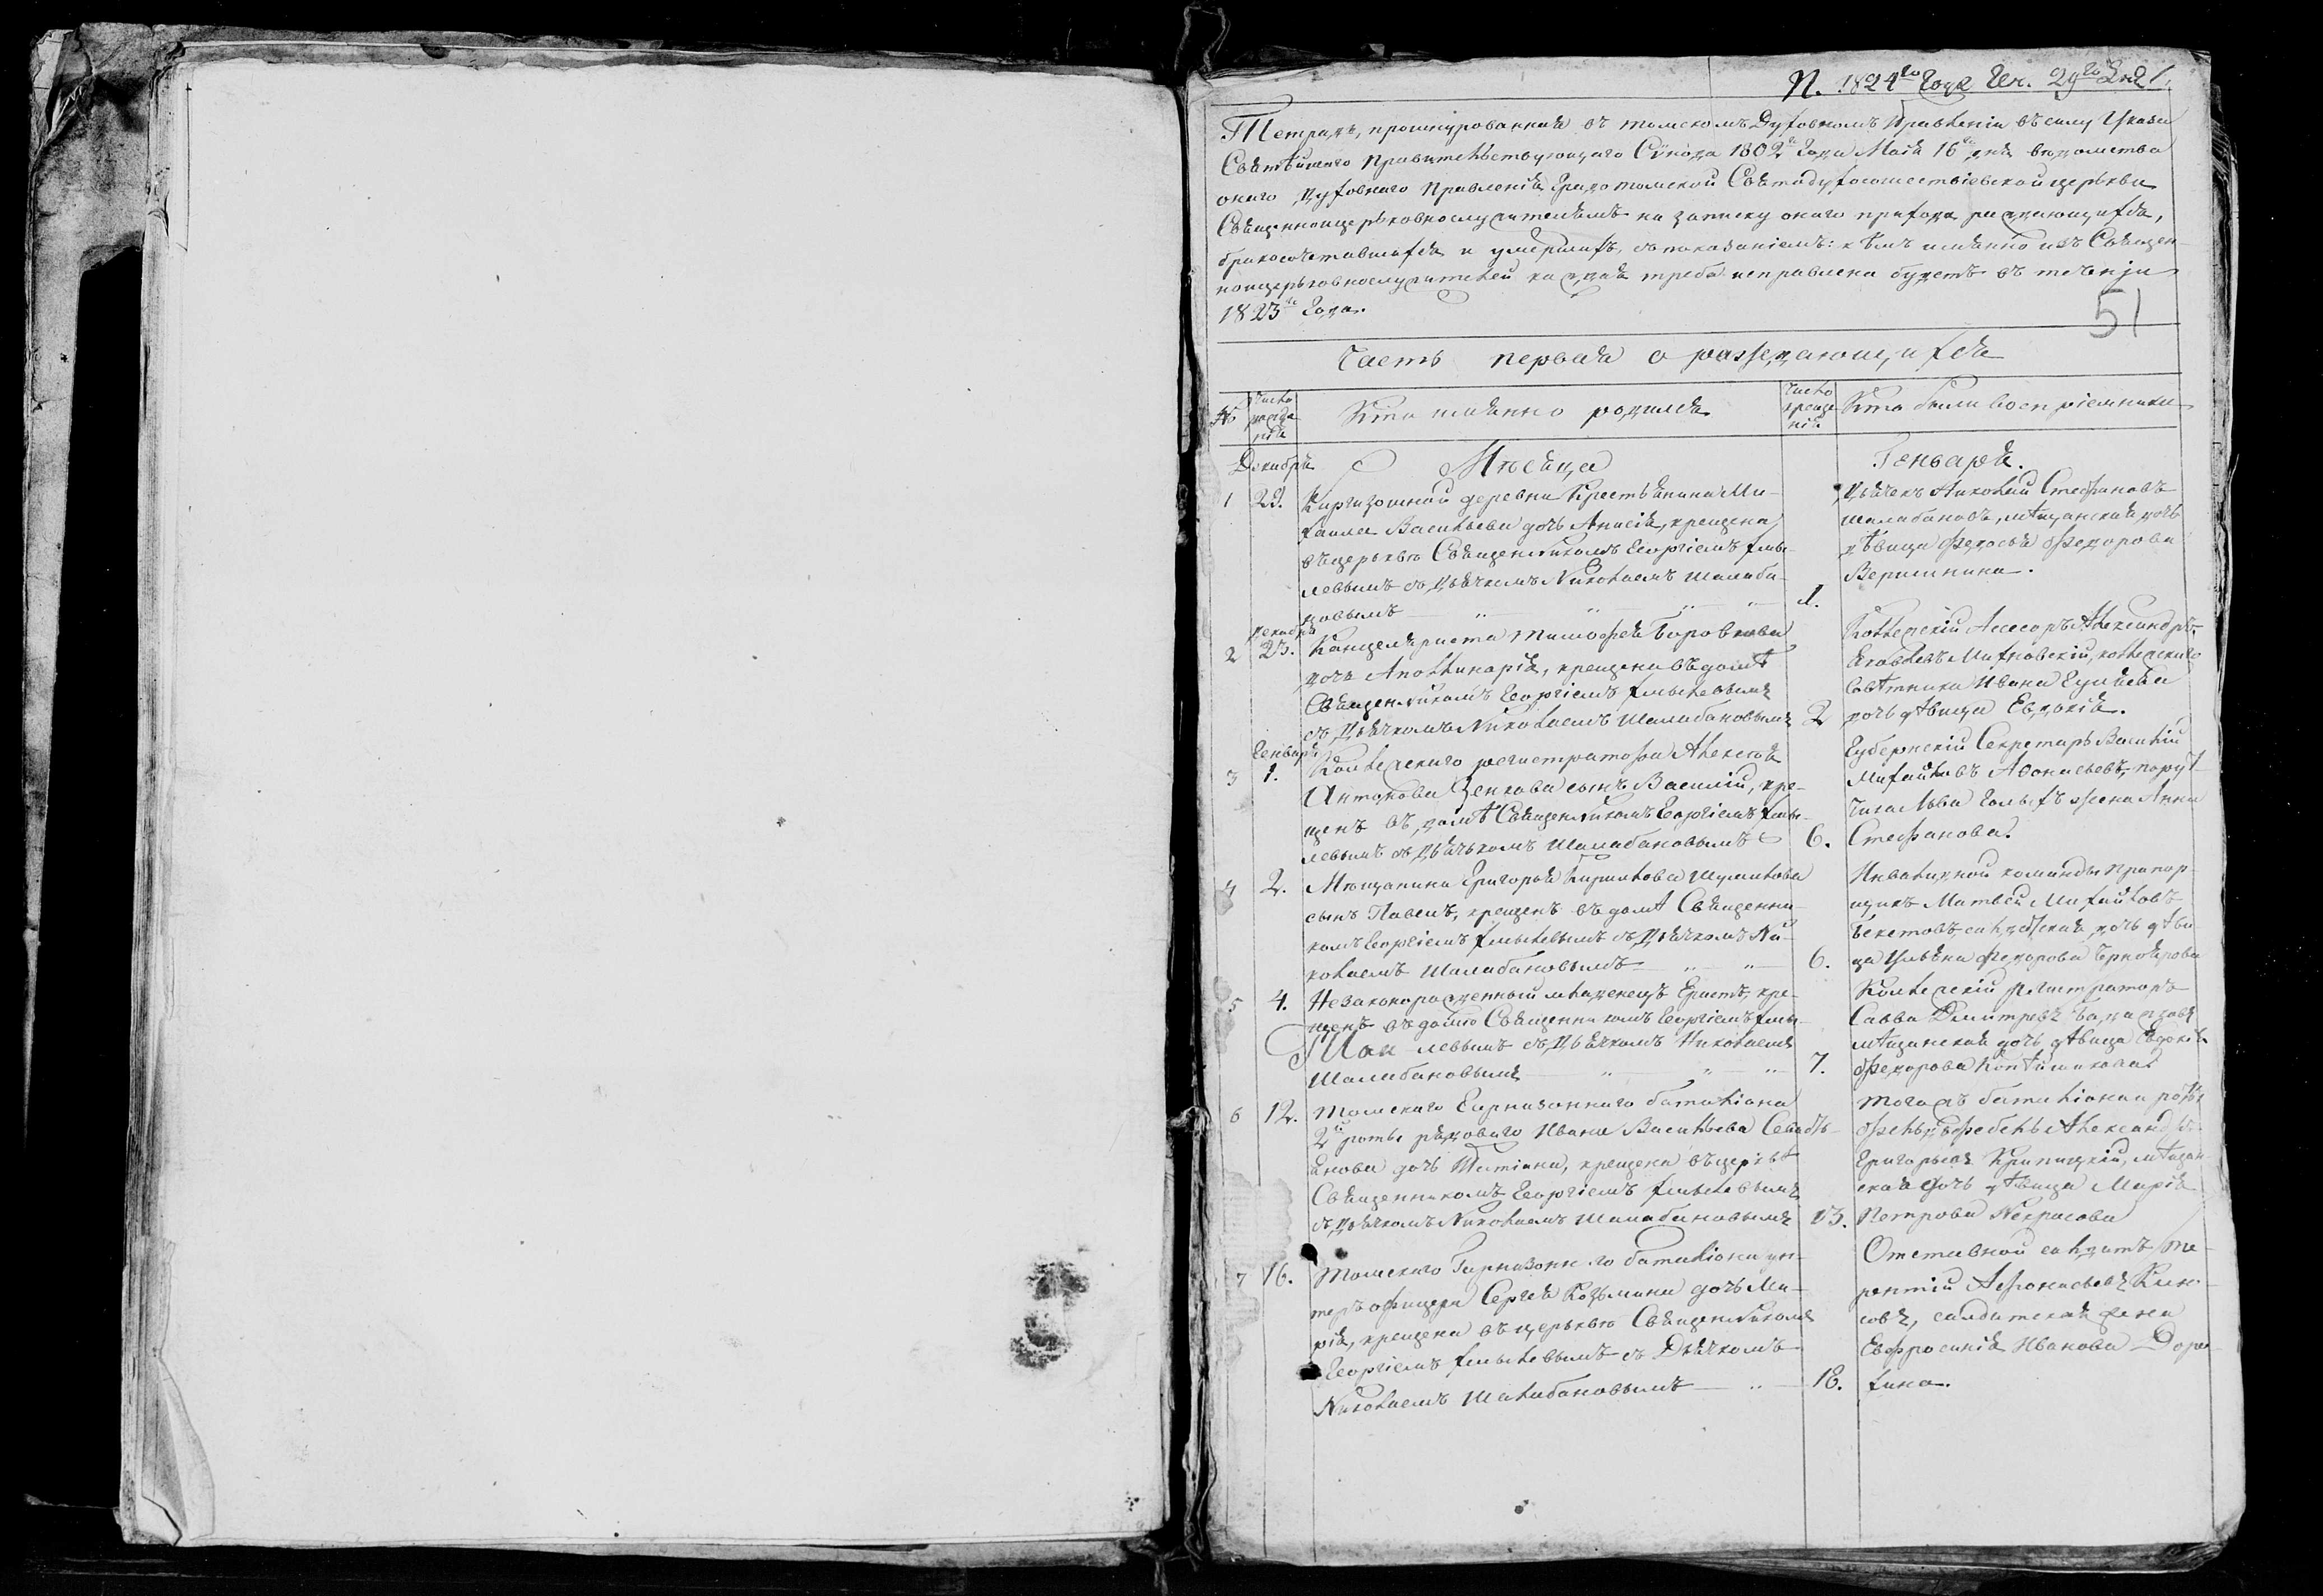 N. 1824го Года Ген. 29го Дня
Тетрадь, прошнурованная въ томскомъ Духовномъ Правленіи въ силу Указа
Святѣйшаго Правительствующаго Сѵнода 1802го Года Маія 16го дня вѣдомства
онаго Духовнаго Правленія Градо томской Святодухосошествіевской церькви
Священноцерьковнослужителямъ на записку онаго прихода раждающихся,
бракосочетавшихся и умершихъ, съ показаніемъ: кѣмъ имянно изъ Священ-
ноцерьковнослужителей каждая треба исправлена будетъ въ теченіи
1823го Года.
51
Часть первая о раждающихся
№
Число рожде нія
Кто имянно родился
Число креще нія
Кто были воспріемники
Мѣсяца
Генваря.
Декабря
1 23.
Киргизошной деревни Крестьянина Ми-
хаила Васильева дочь Анисія, крещена
въ церькьвѣ Священникомъ Георгіемъ Хмы-
левымъ съ Дьячкомъ Николаемъ Шалаба-
новымъ
1.
Дьячекъ Николай Стефановъ
Шалабановъ, мѣщанская дочь
дѣвица Федосья Федорова
Вершинина.
декабря
2 23.
Канцеляриста Тимофея Боровкова
дочь Аполлинарія, крещена въ домѣ
Священникомъ Георгіемъ Хмылевымъ
съ Дьячкомъ Николаемъ Шалабановымъ
2
Коллежскій Ассесоръ Александръ
Яковлевъ Михновскій, коллежскаго
Совѣтника Ивана
дочь дѣвица Евдокія.
Генваря
3 1.
Коллежскаго регистратора Алексѣя
Антонова Зенкова сынъ Василій, кре-
щенъ въ домѣ Священникомъ Георгіемъ Хмы-
левымъ съ Дьячькомъ Шалабановымъ
6.
Губернскій Секретарь Василій
Михайловъ Афонасьевъ, пору-
чика Льва жена Анна
Стефанова.
4 2.
Мѣщанина Григорья Кирилова Шумилова
сынъ Павелъ, крещенъ въ домѣ Священни-
комъ Георгіемъ Хмылевымъ съ Дьячкомъ Ни-
колаемъ Шалабановымъ
6.
Инвалидной команды Прапор-
щикъ Матвей Михайловъ
Бекетовъ, дочь дѣви-
ца Ульяна Федорова
5 4.
Незаконорожденный младенецъ Ерастъ, кре-
щенъ въ домѣ Священникомъ Георгіемъ Хмы-
левымъ съ Дьячкомъ Николаемъ
Шалабановымъ
7.
Коллежскій Регистраторъ
Савва Дмитревъ
мѣщанская дочь дѣвица Евдокія
Федорова
6 12.
Томскаго Гарнизоннаго баталіона
2й роты рядоваго Ивана Васильева
дочь Татіана, крещена въ церьквѣ
Священникомъ Георгіемъ Хмылевымъ
съ Дьячкомъ Николаемъ Шалабановымъ
13.
Тогожъ баталіона роты
Фельдфебель Александръ
Григорьевъ Крипицкій, мѣщан-
ская дочь дѣвица Марія
Петрова Некрасова
7 16.
Томскаго Гарнизоннаго баталіона ун-
теръ офицера Сергея Козьмина дочь Ма-
рія, крещена въ церькьвѣ Священникомъ
Георгіемъ Хмылевымъ съ Дьячкомъ
Николаемъ Шалабановымъ
18.
Отставной салдатъ Те-
рентій Афонасьевъ
салдатская жена
Евфросинія Иванова Доро-
хина.